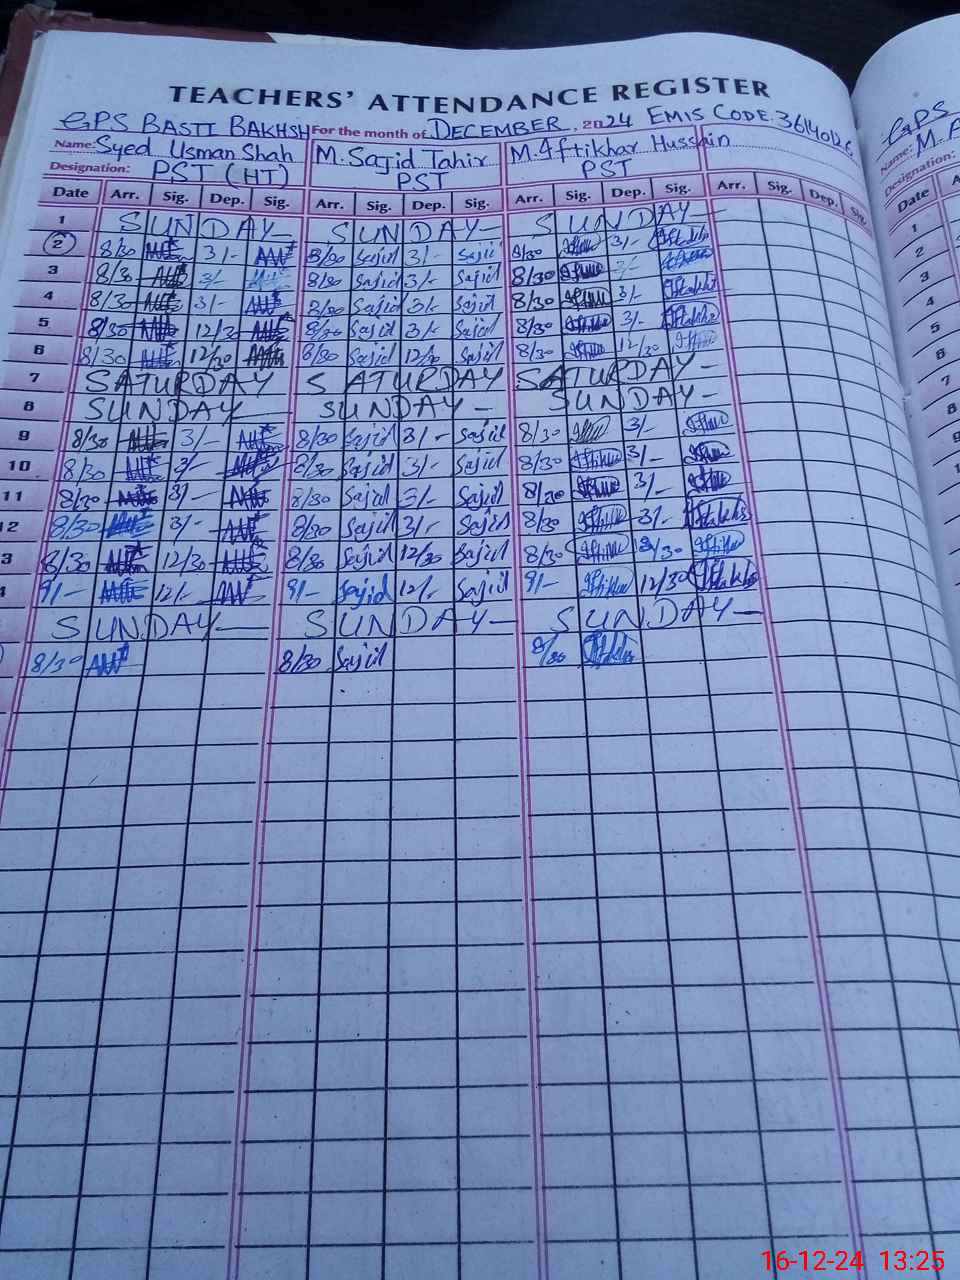 TEACHERS' ATTENDANCE REGISTER
GPS BASTI BAKHSH For the month of DECEMBER, 2024 EMIS CODE. 36140126
Name: Syed Usman Shah M. Sajid Tahir M. Iftikhar Hussain
Designation: PST (HT) PST PST
Date Arr. Sig. Dep. Sig. Arr. Sig. Dep. Sig. Arr. Sig. Dep. Sig. Arr. Sig. Dep. Sig.
1 SUNDAY SUNDAY SUNDAY
2 8/30 3/- 8/30 Sajid 3/- Sajid 8/30 3/-
3 8/30 3/- 8/30 Sajid 3/- Sajid 8/30 3/-
4 8/30 3/- 8/30 Sajid 3/- Sajid 8/30 3/-
5 8/30 12/30 8/30 Sajid 3/- Sajid 8/30 3/-
6 8/30 12/30 8/30 Sajid 12/30 Sajid 8/30 12/30
7 SATURDAY SATURDAY SATURDAY -
8 SUNDAY SUNDAY - SUNDAY -
9 8/30 3/- 8/30 Sajid 3/- Sajid 8/30 3/-
10 8/30 3/- 8/30 Sajid 3/- Sajid 8/30 3/-
11 8/30 3/- 8/30 Sajid 3/- Sajid 8/30 3/-
12 8/30 3/- 8/30 Sajid 3/- Sajid 8/30 3/-
3 8/30 12/30 8/30 Sajid 12/30 Sajid 8/30 12/30
9/- 12/- 9/- Sajid 12/- Sajid 9/- 12/30
SUNDAY SUNDAY - SUNDAY -
8/30 8/30 Sajid 8/30
GPS
Name: M.
Designation:
Date
1
2
3
4
5
6
7
8
16-12-24 13:25